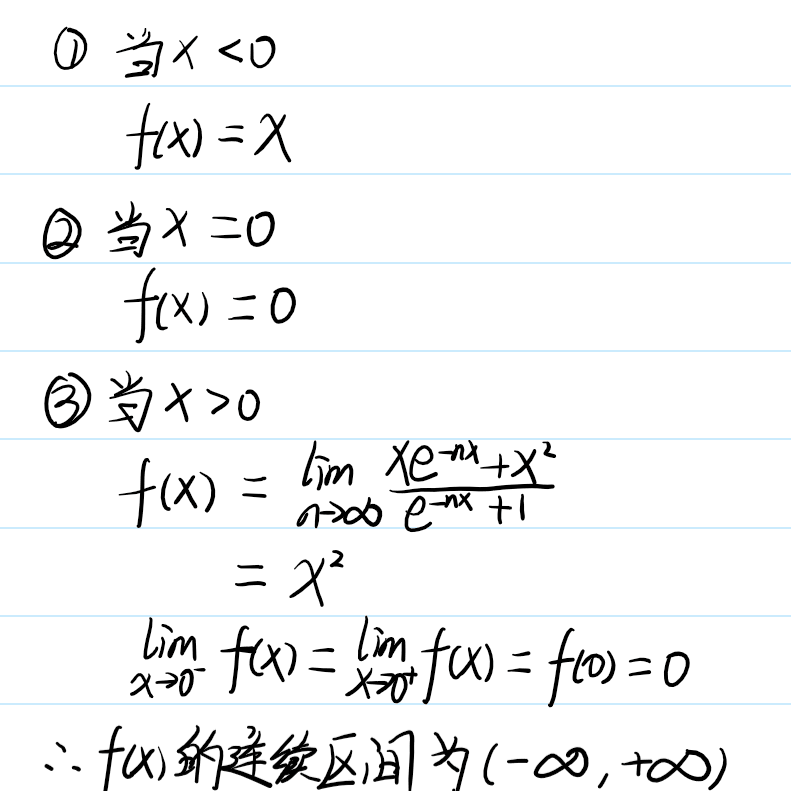 ① 当x<0
f(x)=x
② 当x=0
f(x)=0
③ 当x>0
f(x) = lim_{n→∞} \frac{xe^{-nx}+x^2}{e^{-nx}+1}
= x^2
lim_{x→0^-} f(x) = lim_{x→0^+} f(x) = f(0) = 0
∴ f(x)的连续区间为(-∞,+∞)